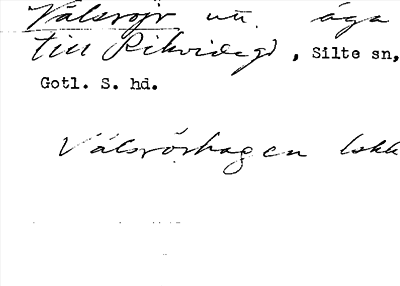 Välsrojr utt. äga
till Rikvide gd, Silte sn,
Gotl. S. hd.
Välsrörhagen lokk